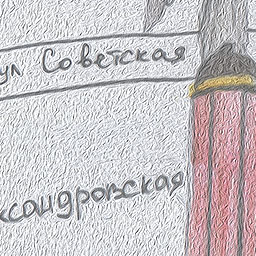 ул Советская
ксандровская